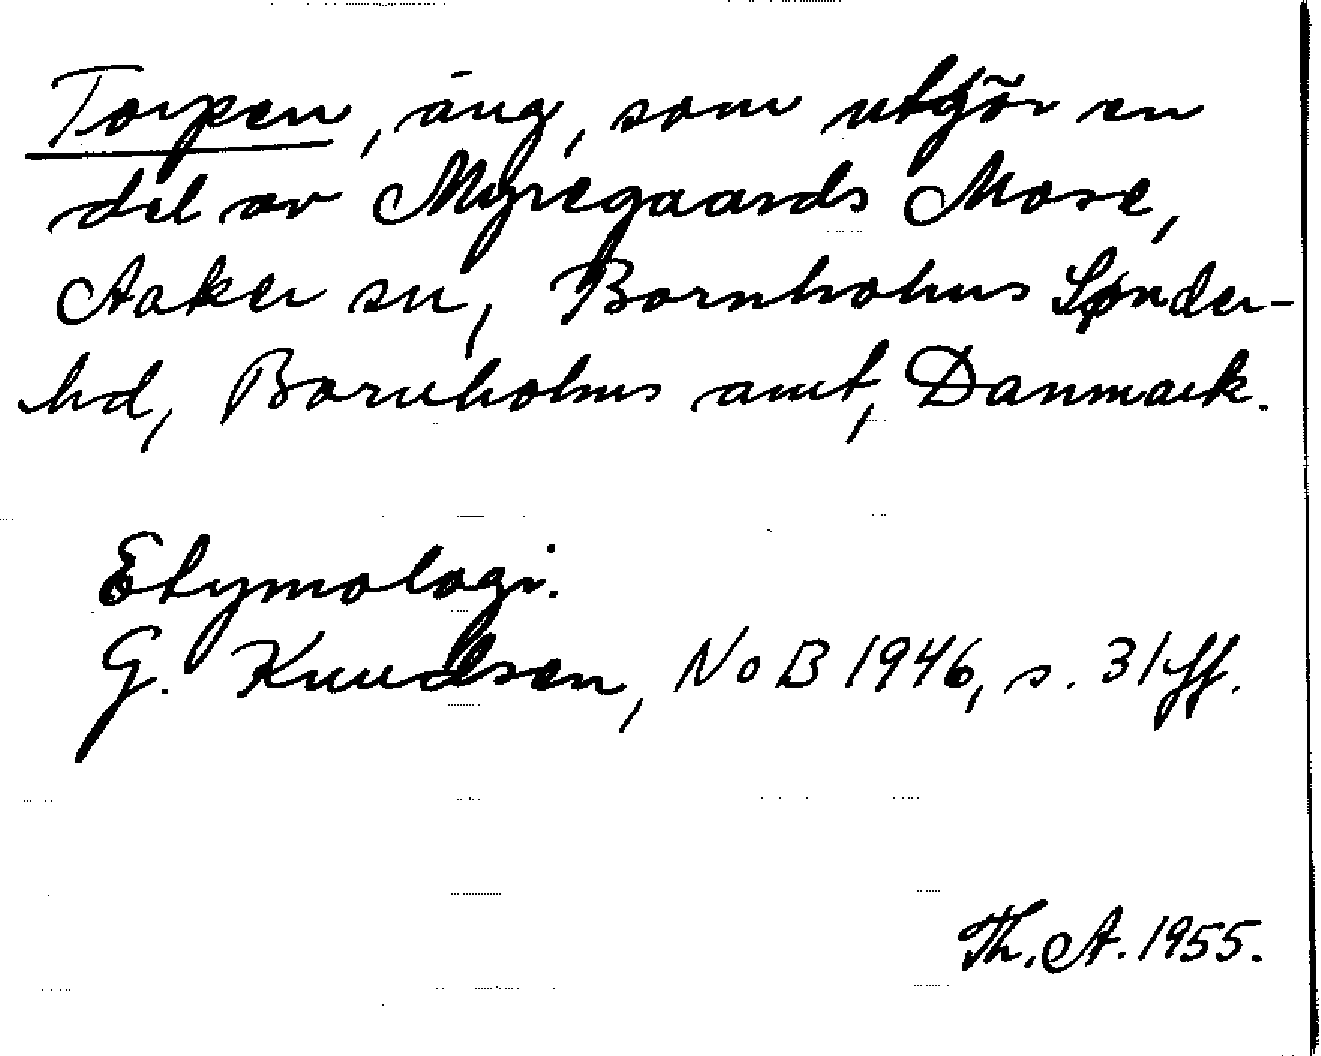 Torpen, äng, som utgör en
del av Myregaards Mose,
Aaker sn, Bornholms Sønder-
hd, Bornholms amt, Danmark.
Etymologi.
G. Knudsen, NoB 1946, s. 31 ff.
Th. A. 1955.